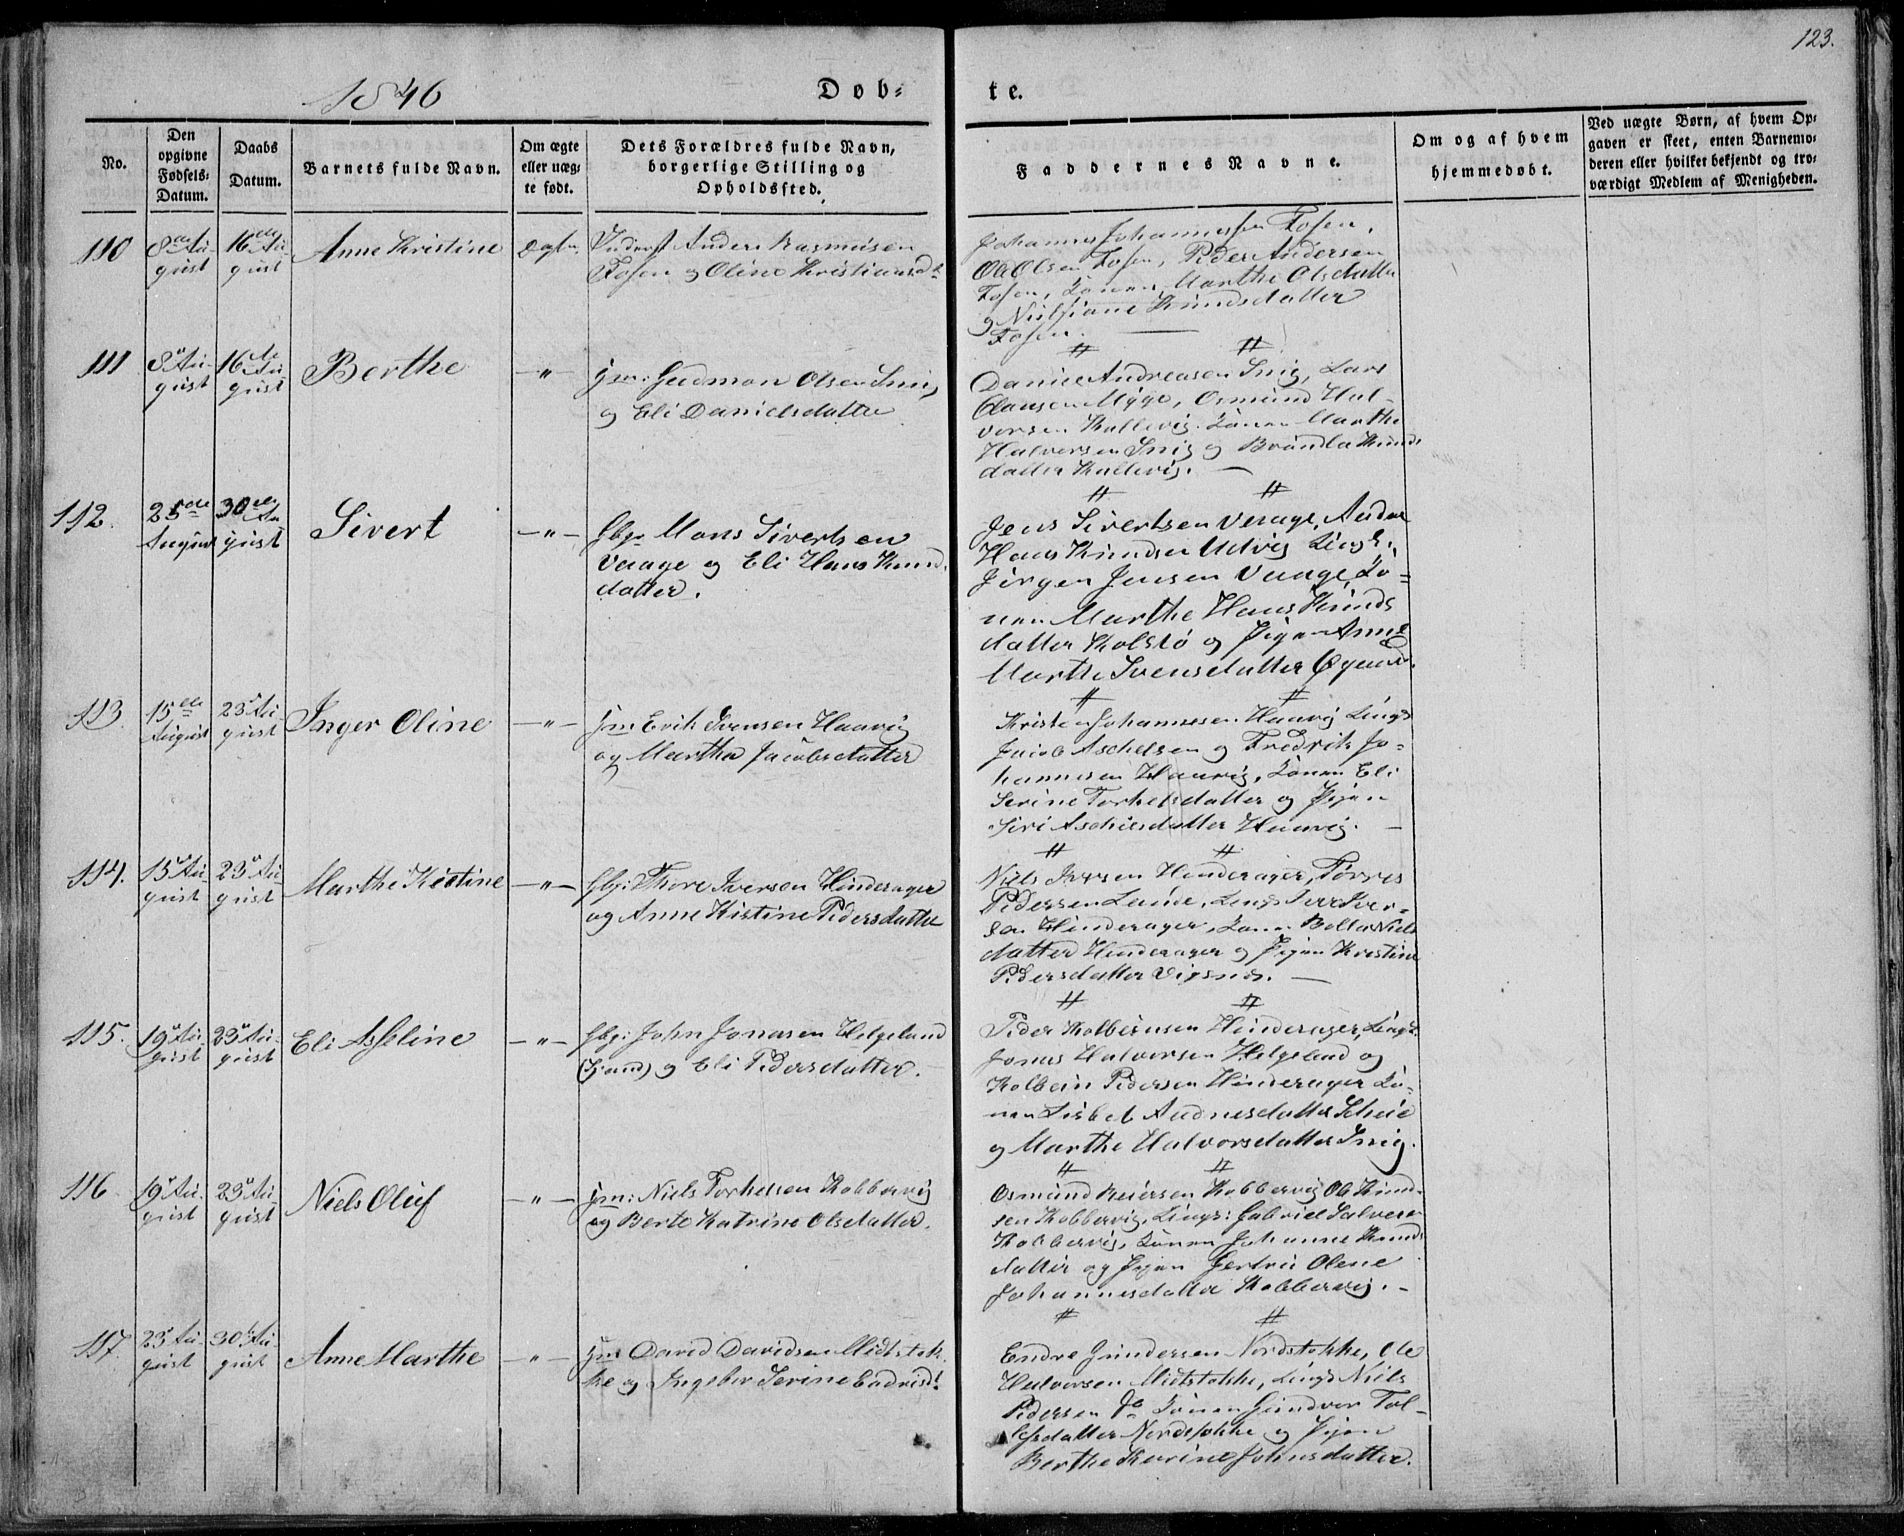 123.
1846
Døb-
te.
No.
Den opgivne Fødsels-Datum.
Daabs Datum.
Barnets fulde Navn.
Om ægte eller uæg-te født.
Dets Forældres fulde Navn, borgerlige Stilling og Opholdssted.
Faddernes Navne.
Om og af hvem hjemmedøbt.
Ved uægte Børn, af hvem Op-gaven er skeet, enten Barnemo-deren eller hvilket bekjendt og tro-værdigt Medlem af Menigheden.
110
8de Au-
gust
16de Au-
gust
Anne Kristine
Anders Rasmusen
Fosen og Oline Kristiansd
Johannes Johannessen Fosen,
Ole Olsen Fosen, Peder Andersen
Fosen, Konen Marthe Olsdatter
og Knudsdatter
Fosen.
111
8 Au-
gust
16de Au-
gust
Berthe
-"-
jm: Gudmon Olsen Snig
og Eli Danielsdatter
Daniel Andreasen Snig, Lars
Clausen Myge, Osmund Hal-
vorsen Kallevig. Konen Marthe
Halvorsen Snig og Knuds
datter Kallevig.
112.
25de
August
30de Au
gust
Sivert
-"-
Gbr Mons Sivertsen
Vaage og Eli Hans Knud
datter.
Jens Sivertsen Vaage, Anders
Hans Knudsen Udvig Ungk.
Jørgen Jensen Vaage, Ko-
nen Marthe Hans Knuds
datter Kolstø og Pigen Anne
Marthe Svensdatter
113.
15de
August
23 Au-
gust
Inger Oline
-"-
jm Erik Svensen Haavig
og Martha Jacobsdatter
Kristen Johannesen Haavig Ungk
Jacob Aschelsen og Fredrik Jo-
hannesen Haavig, Konen Eli
Serine Torkelsdatter og Pigen
Siri Aschelsdatter Haavig.
114.
15 Au-
gust
23 Au-
gust
Marthe Kistine
-"-
Gbr: Thore Iversen Hinderager
og Anne Kistine Pedersdatter
Niels Iversen Hinderager, Tørres
Pedersen Lunde, Ungk Iver Iver-
sen Hinderager, Konen Bella Niels
datter Hinderager og Pigen Kristine
Pedersdatter Vigsnes.
115.
19 Au-
gust
23 Au-
gust
Eli Asseline
-"-
Gbr: John Jonasen Helgeland
og Eli Pedersdatter.
Peder Kolbeinsen Hinderager, Ungk.
Jonas Halvorsen Helgeland og
Kolbein Pedersen Hinderager Ko-
nen Lisbet Audnesdatter Scheie
og Marthe Halvorsdatter Snig.
116.
19 Au-
gust
23 Au-
gust
Niels Oluf
-"-
jm: Niels Torkelsen Kobbervig
og Berte Katrine Olsdatter.
Osmund Reiersen Kobbervig Ole Knud-
sen Kobbervig, Ungk: Gabriel Salvesen
Kobbervig, Konen Johanne Knuds
datter og Pigen Gertru Olene
Johannesdatter Kobbervig.
117.
23 Au-
gust
30 Au-
gust
Anne Marthe
-"-
jm David Davidsen Midtstok-
ke og Ingebor Serine Endresd.
Endre Gundersen Nordstokke, Ole
Halvorsen Midtstokke, Ungk Niels
Pedersen Konen Gundvor Tol-
lefsdatter Nordstokke og Pigen
Berthe Karine Johnsdatter.